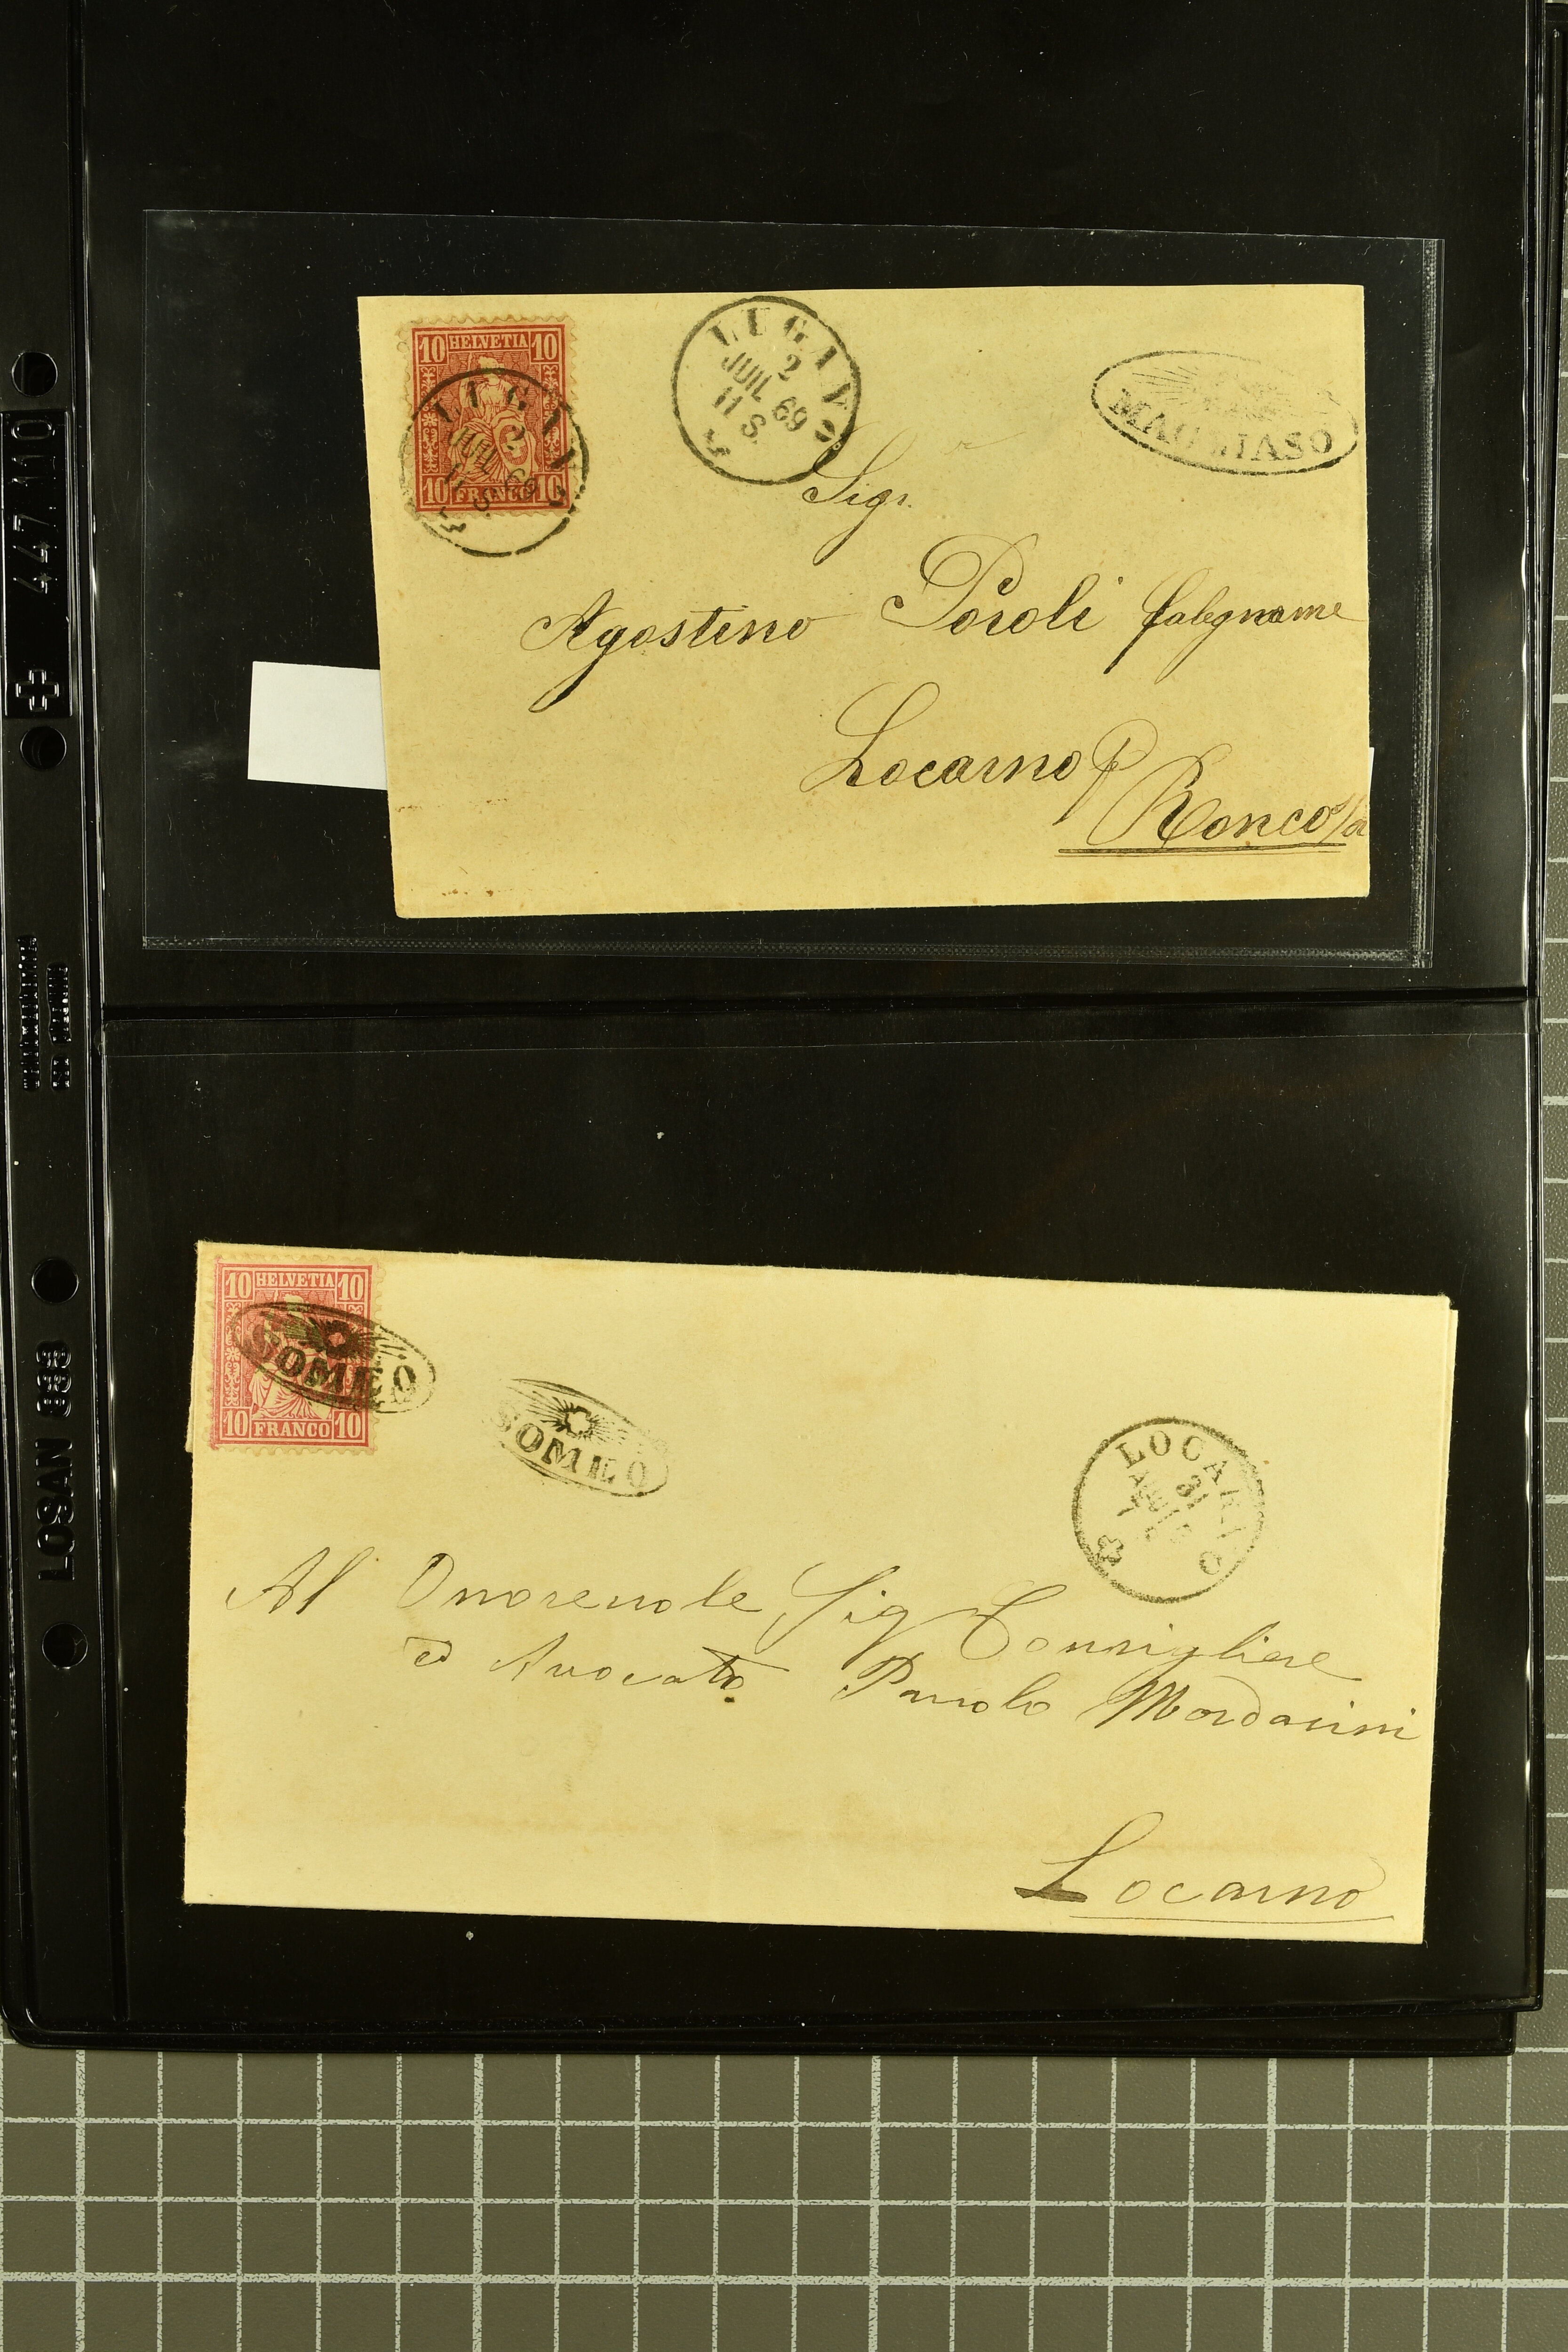 447.110
LOSAN 833
10 HELVETIA 10
10 FRANCO 10
LUGANO
2
JUIL 69
11 S.
LUGANO
2
JUIL 69
11 S.
MAGLIASO
Sigr.
Agostino Poroli falegname
Locarno p
Ronco s/a
10 HELVETIA 10
10 FRANCO 10
SOMEO
SOMEO
LOCARNO
31
Al Onorevole Sig Consigliere
ed Avocato Paolo Mordasini
Locarno